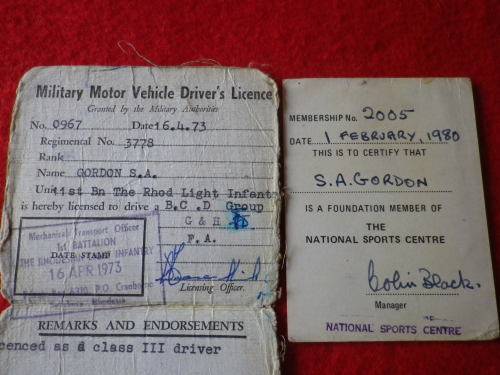 Military Motor Vehicle Driver's Licence
Granted by the Military Authorities
No. 0967 Date 16.4.73
Regimental No. 3778
Rank
Name GORDON S.A.
Unit 1st Bn The Rhod Light Infant
is hereby licensed to drive a B.C.D Group
G & H
F.A.
Mechanical Transport Officer
1st BATTALION
THE RHODESIAN LIGHT INFANTRY
DATE STAMP
16 APR 1973
P.O. Cranborne
Rhodesia
Licensing Officer.
REMARKS AND ENDORSEMENTS
cenced as a class III driver
MEMBERSHIP No. 2005
DATE 1 FEBRUARY, 1980
THIS IS TO CERTIFY THAT
S.A. GORDON
IS A FOUNDATION MEMBER OF
THE
NATIONAL SPORTS CENTRE
Colin Black.
Manager
NATIONAL SPORTS CENTRE